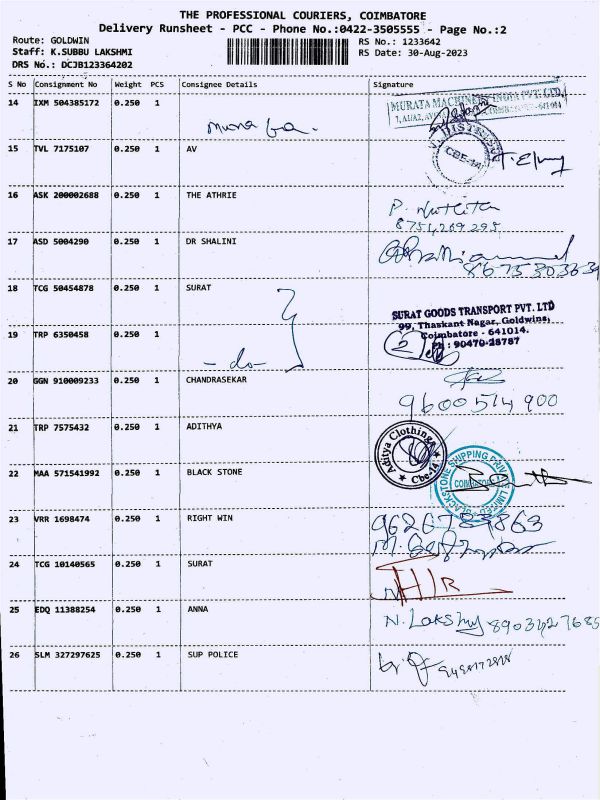 THE PROFESSIONAL COURIERS, COIMBATORE
Delivery Runsheet - PCC - Phone No.:0422-3505555 - Page No.:2
Route: GOLDWIN
Staff: K.SUBBU LAKSHMI
DRS No.: DCJB123364202
RS No.: 1233642
RS Date: 30-Aug-2023
S No Consignment No Weight PCS Consignee Details Signature
14 IXM 504385172 0.250 1
MURATA MACHINERY INDIA PVT. LTD.
15 TVL 7175107 0.250 1 AV
CBE-14
16 ASK 200002688 0.250 1 THE ATHRIE
8754269295
17 ASD 5004290 0.250 1 DR SHALINI
18 TCG 50454878 0.250 1 SURAT
SURAT GOODS TRANSPORT PVT. LTD
99, Thaskant Nagar, Goldwins,
Coimbatore - 641014.
Ph : 90470-28787
19 TRP 6350458 0.250 1
- do -
20 GGN 910009233 0.250 1 CHANDRASEKAR
9600514900
21 TRP 7575432 0.250 1 ADITHYA
Aditya Clothings
Cbe-14
22 MAA 571541992 0.250 1 BLACK STONE
BLACKSTONE SHIPPING PRIVATE LIMITED
COIMBATORE
23 VRR 1698474 0.250 1 RIGHT WIN
24 TCG 10140565 0.250 1 SURAT
25 EDQ 11388254 0.250 1 ANNA
N. Lakshmy 8903427685
26 SLM 327297625 0.250 1 SUP POLICE